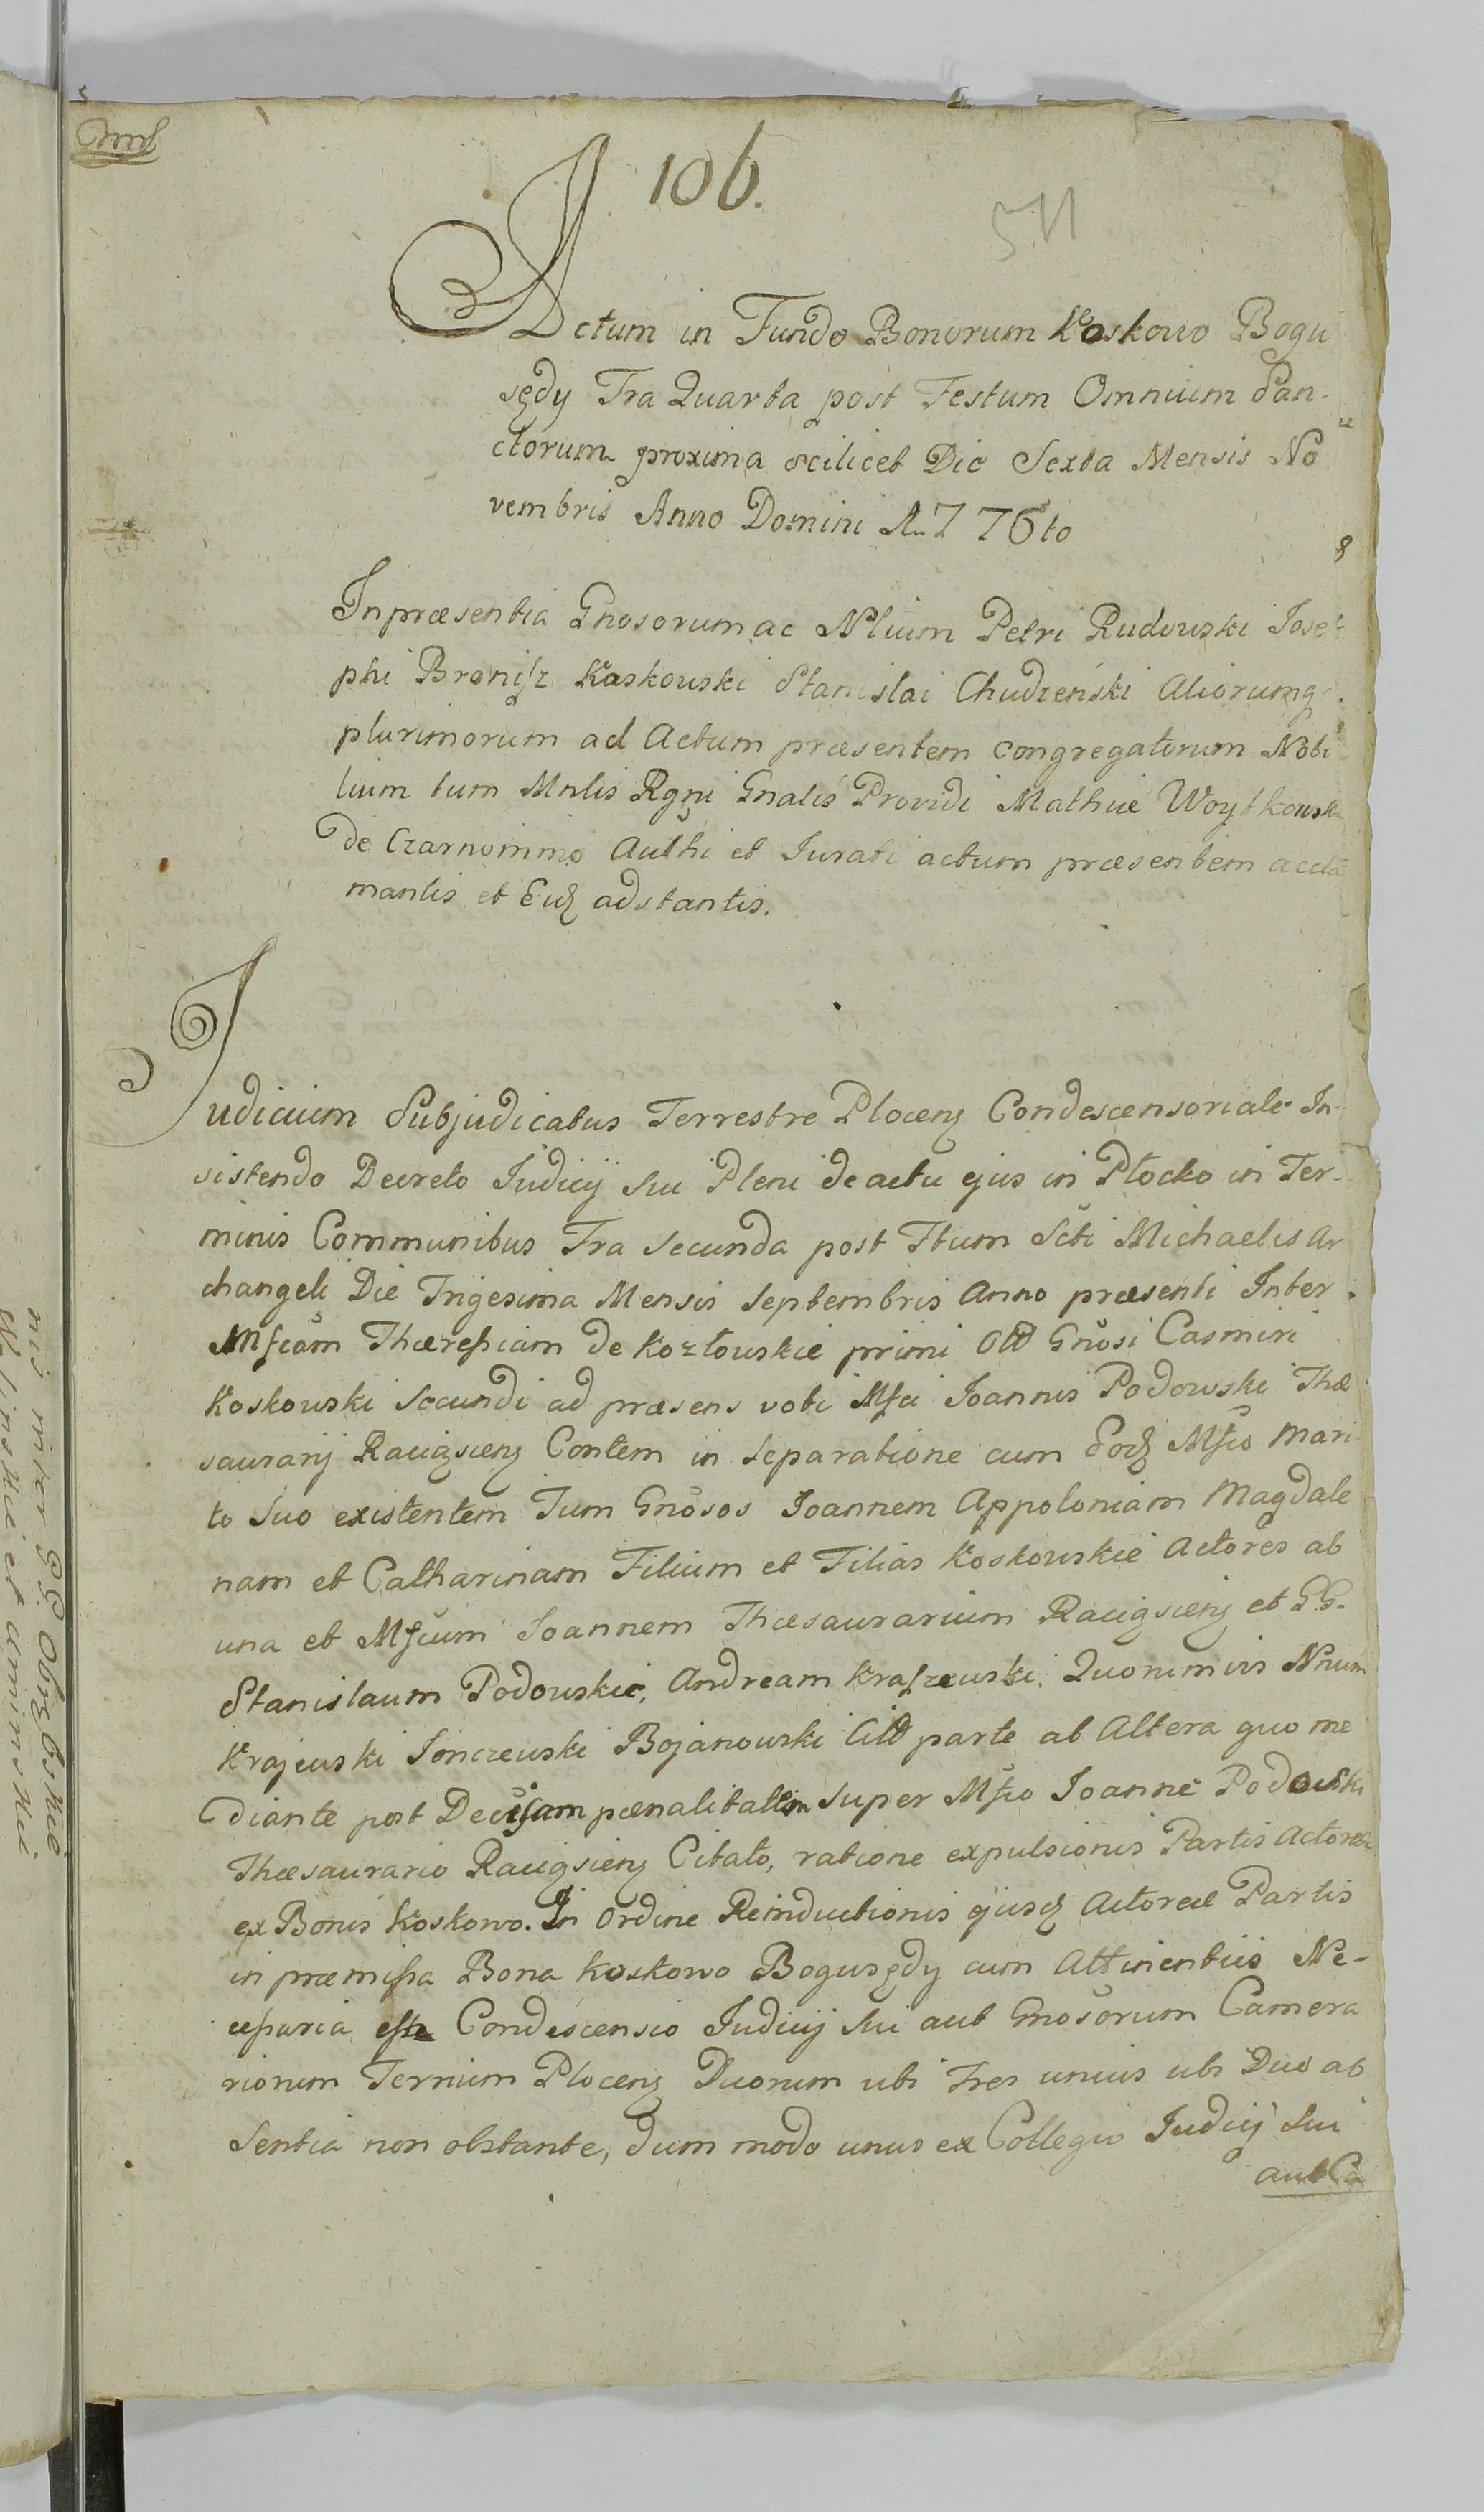 106.
511
Actum in Fundo Bonorum Koskowo Bogu
sędy Fra Quarta post Festum Omnium San-
ctorum proxima scilicet Die Sexta Mensis No
vembris Anno Domini 1776to
In præsentia Gnosorum ac Nlium Petri Rudowski Jose
phi Bronisz Kaskowski Stanislai Chudzeński Aliorumq
plurimorum ad Actum præsentem congregatorum Nobi
lium tum Mnlis Rgni Gnalis Providi Mathiæ Woytkowski
de Czarnomino Authi et Jurati actum præsentem accla
mantis et Eidz adstantis.
Judicium Subjudicatus Terrestre Plocenz Condescensoriale In-
sistendo Decreto Judicij Sui Pleni de actu ejus in Płocko in Ter-
minis Communibus Fra Secunda post Ftum Scti Michaelis Ar
changeli Die Trigesima Mensis Septembris Anno præsenti Inter
Mfcam Thæressiam de Kozłowskie primi Olo Gnosi Casmiri
Koskowski Secundi ad præsens voti Mfci Joannis Podowski Thæ
saurarij Raciązienz Contem in Separatione cum Eodz Mfco Mari
to Suo existentem Tum Gnosos Joannem Appoloniam Magdale
nam et Catharinam Filium et Filias Koskowskie Actores ab
una et Mfcum Joannem Thæsaurarium Raciązienz et GG.
Stanislaum Podowskie, Andream Kraszewski, Quonimirs Nnum
Krajewski Bojanowski Citd parte ab Altera quo me
diante post Decisam pœnalitatem Super Mfco Joanne Podowski
Thæsaurario Raciązienz Citato, ratione expulsionis Partis Actoreæ
ex Bonis Koskowo. In Ordine Reinductionis ejusdz Actoreæ Partis
in præmissa Bona Koskowo Bogusędy cum Attinentiis Ne-
cessaria esse Condescensio Judicij Sui aut Gnosorum Camera
riorum Ternium Plocenz Duorum ubi Tres unius ubi Duo ab
Sentia non obstante, dum modo unus ex Collegio Judicij Sui
aut Ca